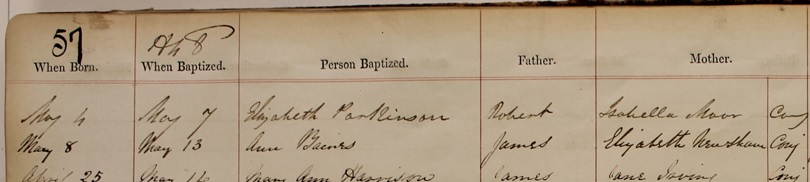 57
When Born. When Baptized. Person Baptized. Father. Mother.
May 4 May 7 Elizabeth Parkinson Robert Isabella Moor Conj
May 8 May 13 Ann Baines James Elizabeth Newsham Conj
April 25 May 14 Mary Ann Harrison James Jane Irving Conj